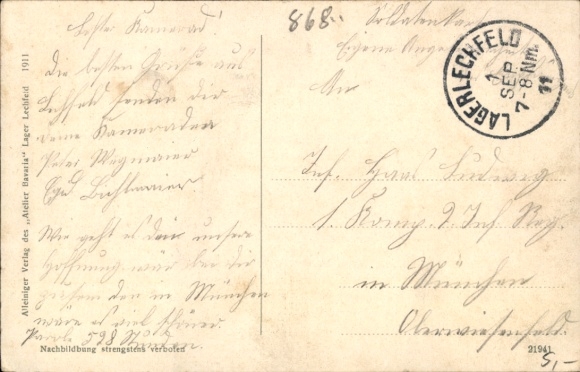 Lieber Kamerad!
Die besten Grüße aus
Lechfeld senden dir
deine Kameraden
Peter Wegmaier
Wie geht es dir unsere
Hoffnung wär bei dir
den in München
wäre es viel schöner.
Parole 598 Stunden.
Nachbildung strengstens verboten
Alleiniger Verlag des „Atelier Bavaria" Lager Lechfeld 1911
868.
Soldatenkarte
Eigene Ang
LAGER LECHFELD
1
SEP
7-8 Nm.
11
An
Inf. Haas Ludwig
1. Komp. 2. Inf. Reg.
in München
Oberwiesenfeld.
21941
5,-